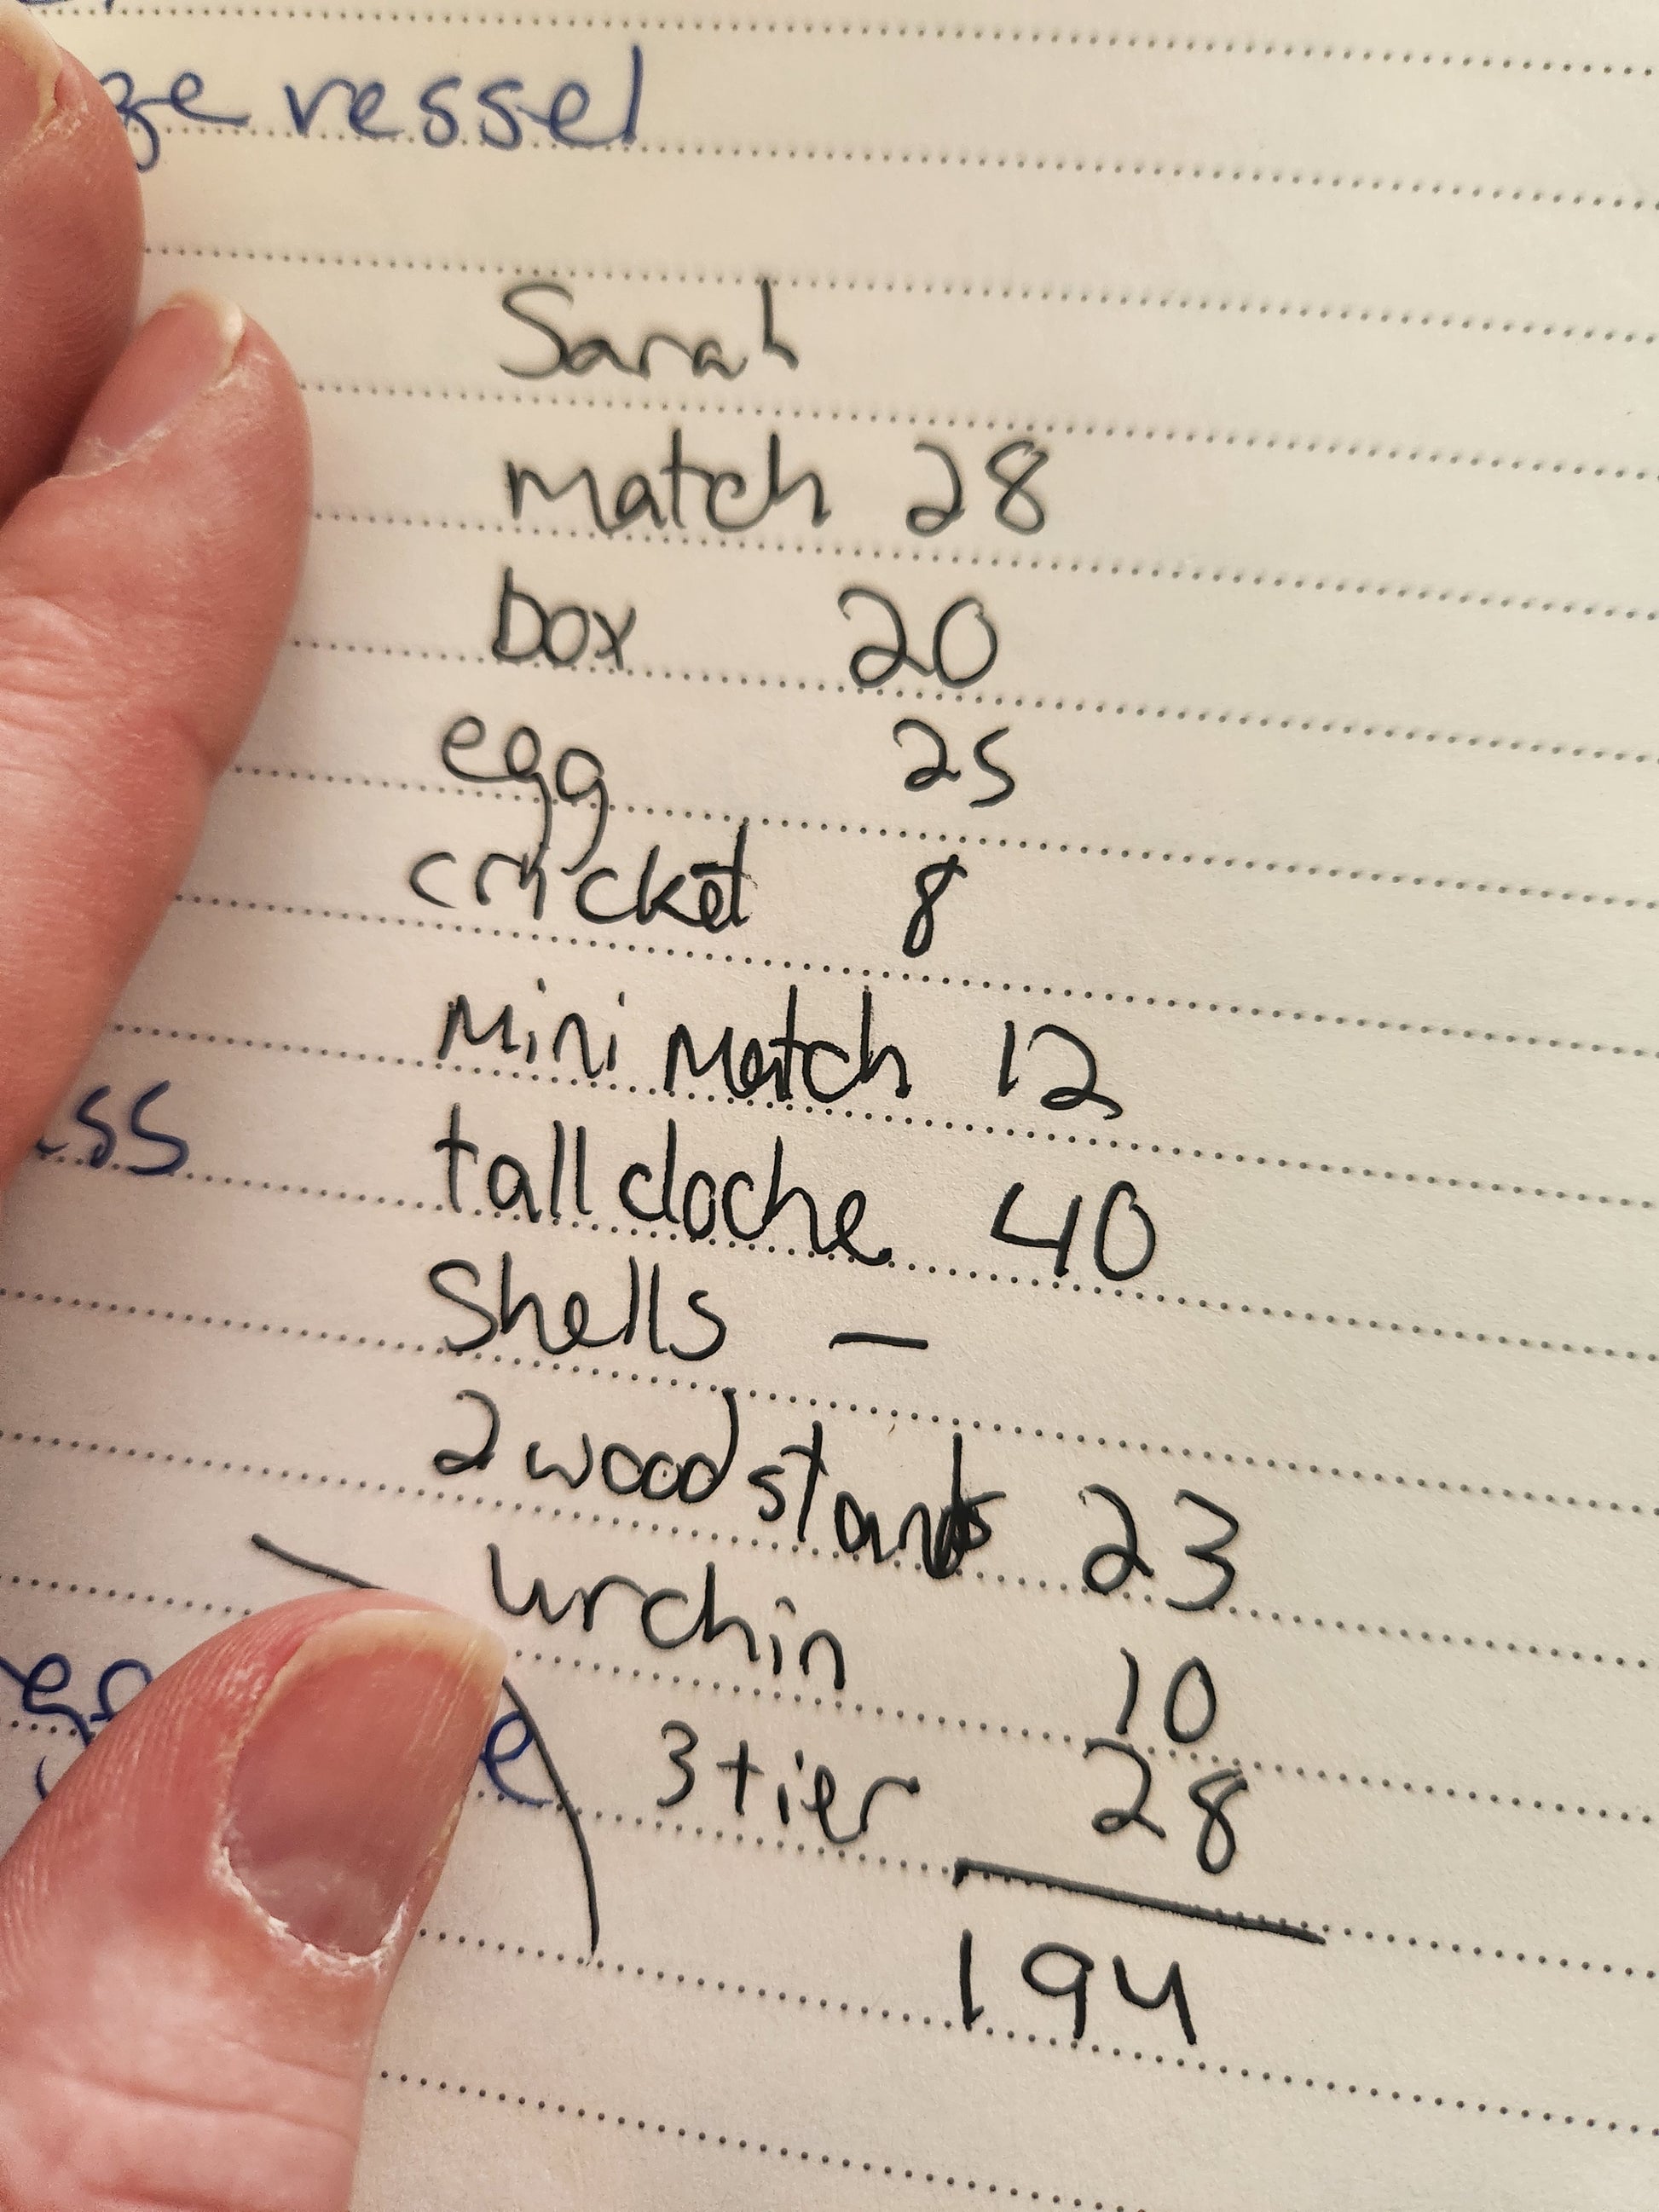 vessel
Sarah
Match 28
box 20
egg 25
cricket 8
Mini Match 12
tall cloche 40
Shells —
2 wood stands 23
urchin 10
3 tier 28
194